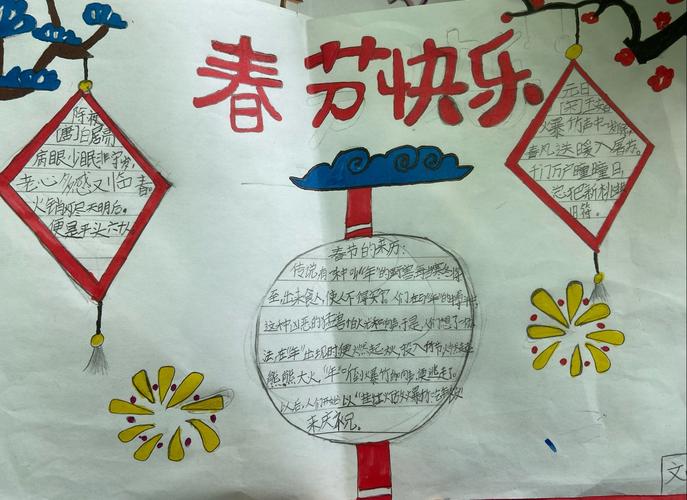 春节快乐
除夜
[唐]白居易
病眼少眠非守岁,
老心多感又临春
火销灯尽天明后。
便是平头六十人
元日
[宋]王安石
爆竹声中一岁除
春风送暖入屠苏。
千门万户瞳瞳日
总把新桃
旧符。
春节的来历:
传说有 叫"年"的 害
至,出来食人,
这种凶恶的 兽怕火光和响 于是,人们想了
法在"年"出现时便燃起火,投入竹节
熊熊大火,"年" 到爆竹 便逃走了。
以后,人们 以"挂红灯放爆竹"
来庆祝。
文